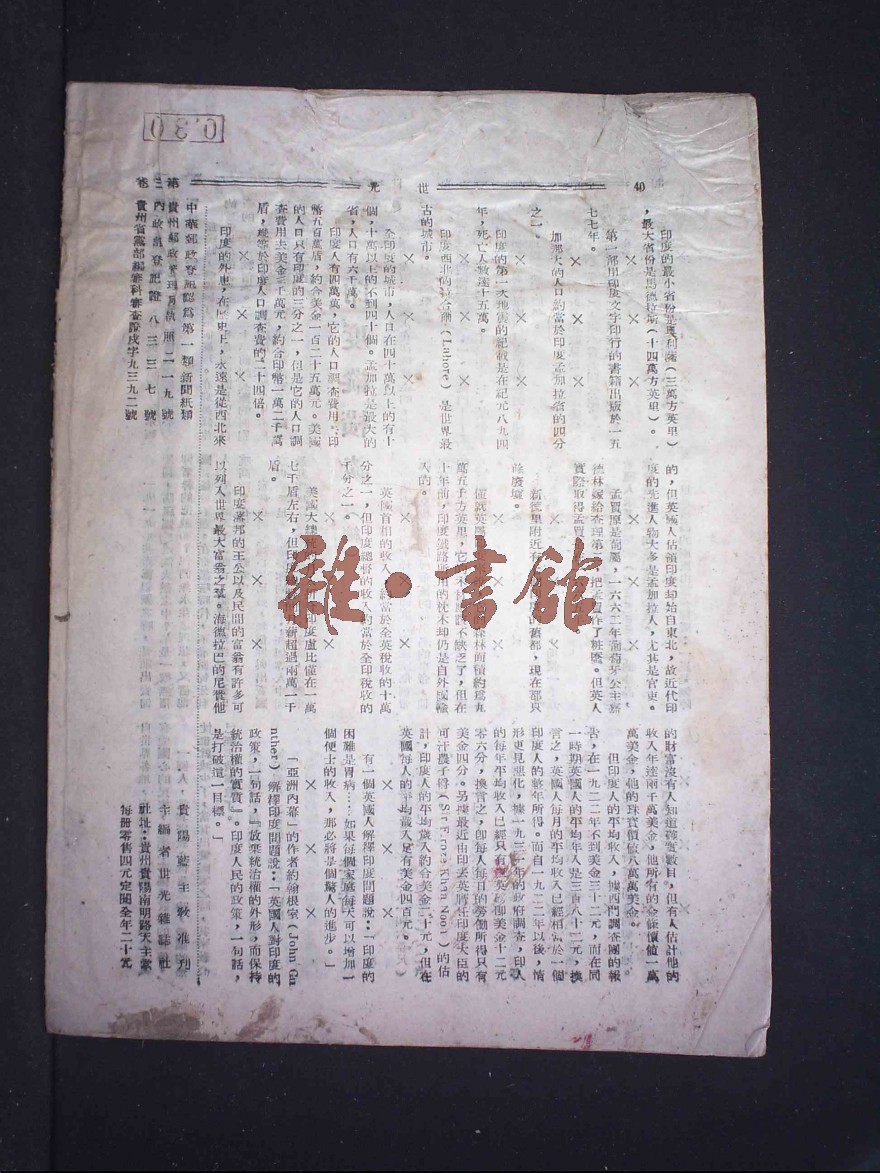 40
世光
印度的最小省份是奧利薩(三萬方英里)
,最大省份是馬德拉斯(十四萬方英里)。
× × ×
第一部用印度文字印行的書籍出版於一五
七七年。
× × ×
加拿大的人口約當於印度孟加拉省的四分
之一。
× × ×
印度的第一次地震的紀載是在紀元八九四
年,死亡人數達十五萬。
× × ×
印度西北的拉合爾(Lahore)是世界最
古的城市。
× × ×
全印度的城市,人口在四十萬以上的有十
個,十萬以上的不到四十個。孟加拉是最大的
省,人口有六千萬。
印度人有四萬萬,它的人口調查費用,印
幣五百萬盾,約合美金一百二十五萬元。美國
的人口只有印度的三分之一,但是它的人口調
查費用去美金三千萬元,約合印幣一萬二千萬
盾,總等於印度人口調查費的二十四倍。
× × ×
印度的外患,在歷史上,永遠是從西北來
的,但英國人佔領印度却始自東北,故近代印
度的先進人物大多是孟加拉人,尤其是官吏。
× × ×
孟買原是葡屬,一六六二年葡萄牙公主嘉
德林嫁給查理第二,把孟買作了粧奩。但英人
實際取得孟買
× × ×
新德里附近有 的舊都,現在都只
餘廢墟。
× × ×
僅就英屬 的森林面積約爲九
萬五千方英里,它的木材應該不缺乏了,但在
十年前,印度鐵路所用的枕木却仍是自外國輸
入的。
× × ×
英國首相的收入,約當於全英稅收的十萬
分之一,但印度總督的收入約當於全印稅收的
千分之一。
× × ×
美國大總統的 印度盧比僅在一萬
七千盾左右,但印度 薪超過兩萬一千
盾。
× × ×
印度藩邦的王公以及民間的富翁有許多可
以列入世界最大富翁之羣。海德拉巴的尼賛他
的財富沒有人知道確實數目,但有人估計他的
收入年達兩千萬美金,他所有的金條價值一萬
萬美金,他的珠寶價值八萬萬美金。
但印度人的平均收入,據西門調查團的報
告,在一九二二年不到美金三十二元,而在同
一時期英國人的平均年入是三百八十二元,換
言之,英國人每月的平均收入已經相當於一個
印度人的整年所得。而自一九二二年以後,情
形更見惡化,據一九三一年的政府調查,印人
的每年平均收入已經只有 美金十二元
零六分,換言之,即每人每日的勞働所得只有
美金四分。另據最近由印去英將任印度大臣的
可汗農子爵(Sir Firoz Khan Noon)的估
計,印度人的平均歲入約合美金二十元,但在
英國每人的平均歲入足有美金四百元。
× × ×
有一個英國人解釋印度問題說:「印度的
困難是胃病……如果每個家庭每天可以增加一
個便士的收入,那必將是個驚人的進步。」
× × ×
「亞洲內幕」的作者約翰根室(John Gu
nther)解釋印度問題說:「英國人對印度的
政策,一句話,『放棄統治權的外形,而保持
統治權的實質』。印度人民的政策,一句話,
是打破這一目標。」
中華郵政登記認爲第一類新聞紙類
貴州郵政管理局執照二一一九號
內政部登記證八三三七號
貴州省黨部編審科審查證成字九三九二號
貴陽藍主教准刊
主編者世光雜誌社
社址:貴州貴陽南明路天主堂
每冊零售四元定閱全年二十元
0.30
雜·書館